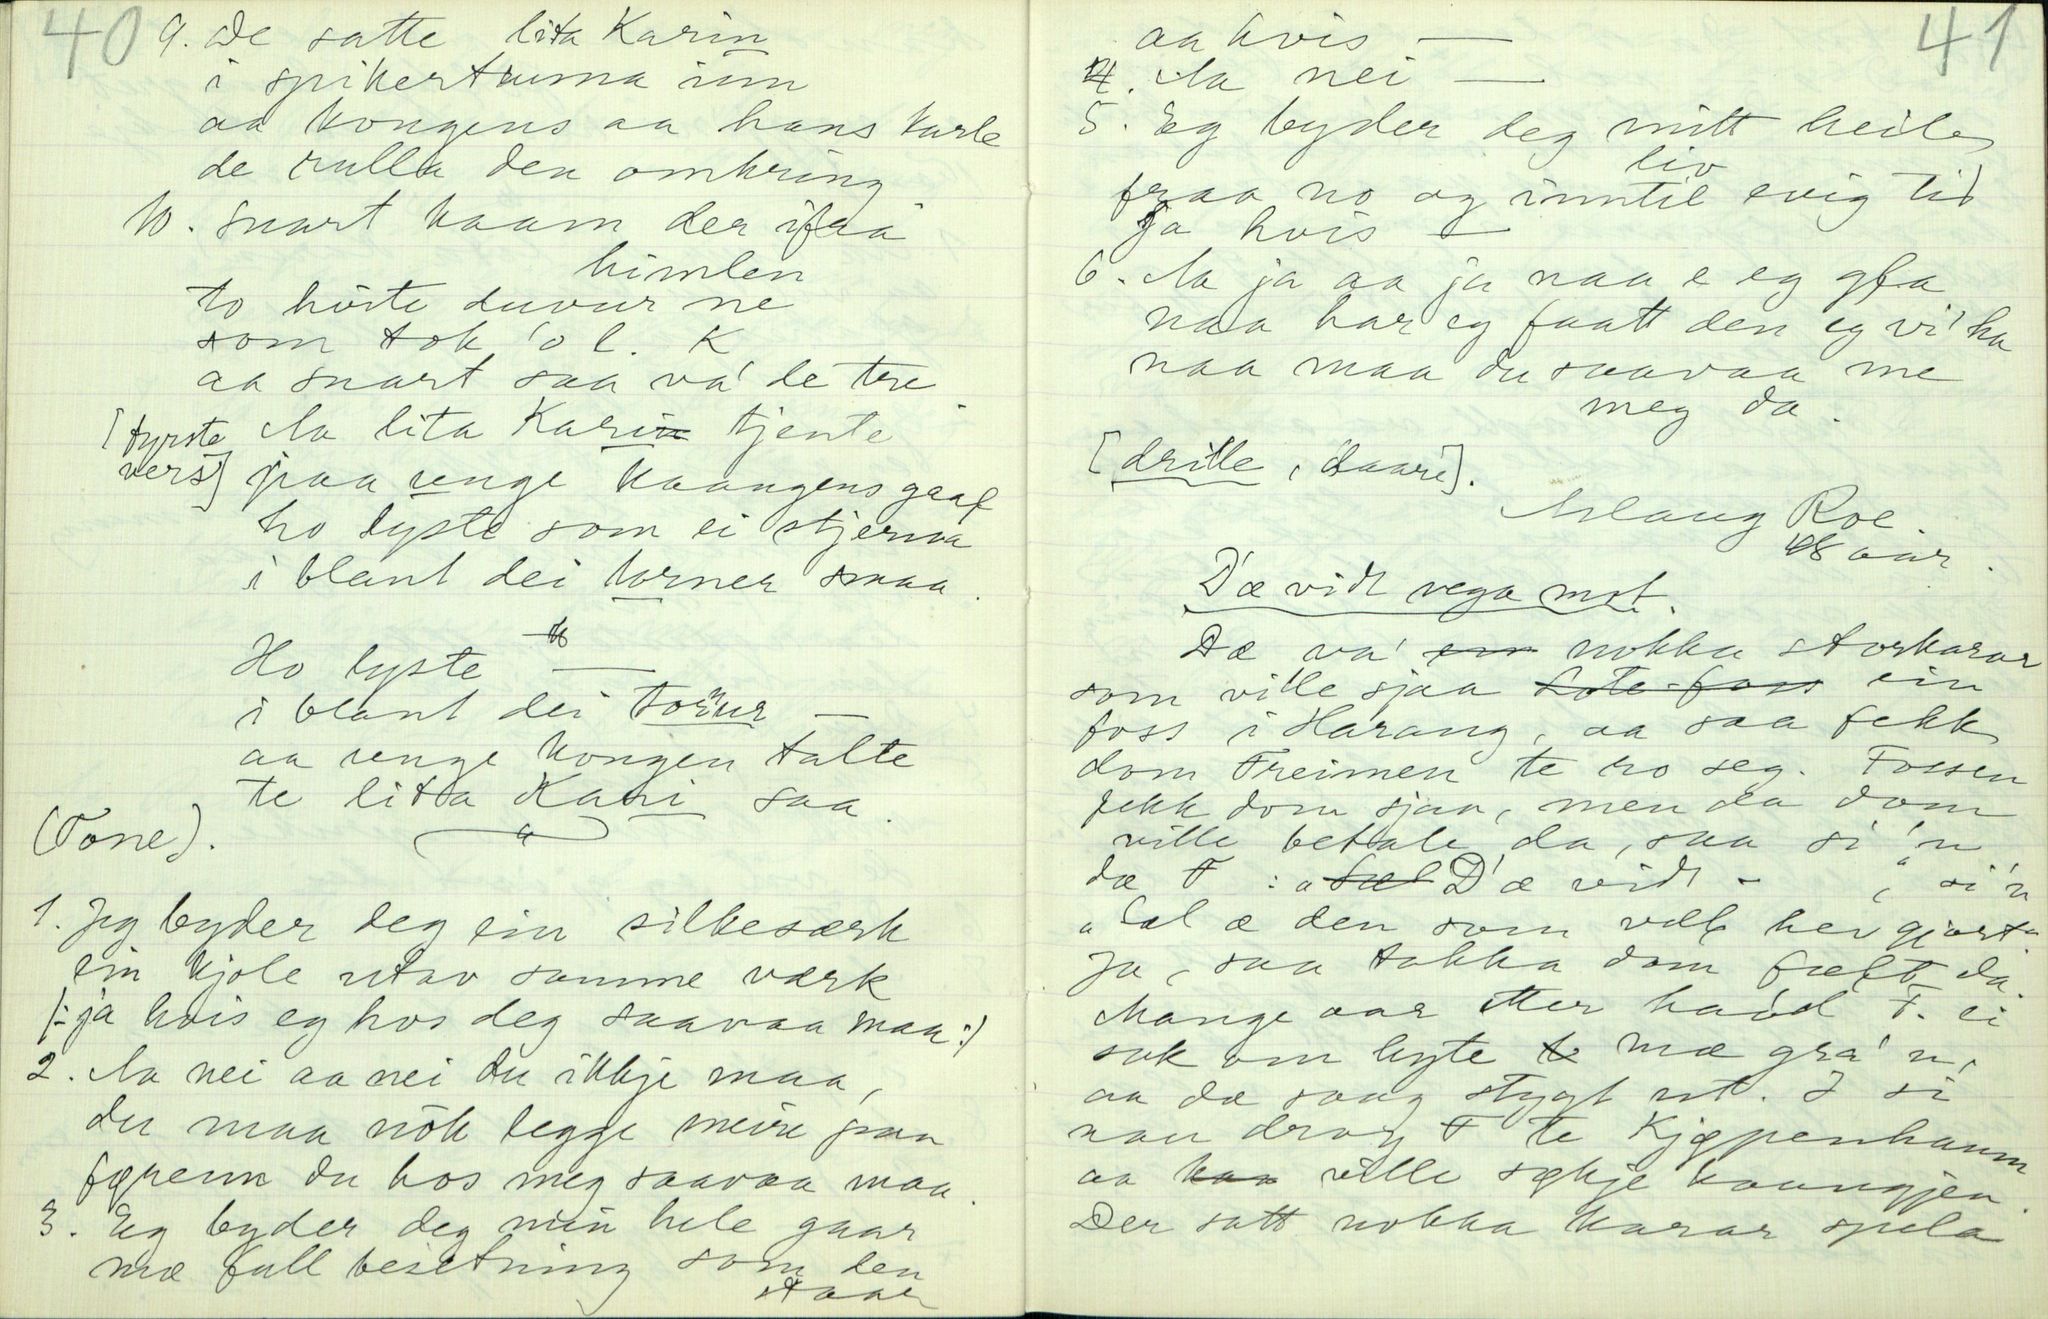 40
9. De satte lita Karin
i spikertunna inn
aa kongens aa hans karle
de rulla den omkring
10. Snart kaam der ifrå
himlen
to hvite duvur ne
som tok 'o l. K
aa snart saa va' de tre
[fyrste Aa lita Karin tjente
vers] paa unge kaangens gaal
ho lyste som ei stjerna
i blant dei terner smaa.
Ho lyste —
i blant dei tornur —
aa unge kongen talte
te litta Kari saa.
(Tone).
1. Jeg byder deg ein silkesærk
ein kjole utav samme værk
/: ja hvis eg hos deg saavaa maa :/
2. Aa nei aa nei du ikkje maa,
du maa nok legge meire paa
førenn du hos meg saavaa maa.
3. Eg byder deg min hele gaar
mæ full besetning som den
staar
41
aa hvis —
4. Aa nei —
5. Eg byder deg mitt heile
liv
fraa no og inntil evig tid
Ja hvis —
6. Aa ja aa ja naa e eg gla
naa har eg faatt den eg vi' ha
naa maa du saavaa me
meg da.
[drille, daare].
Aslaug Roe.
48 aar.
D'æ vidt vega mot.
Dæ va' en nokka storkarar
som ville sjaa Lote-foss ein
foss i Harang, aa saa fekk
dom Freimen te ro seg. Fossen
fekk dom sjaa, men da dom
ville betale da, saa si 'n
da F : "Sæl D'æ vidt – ", si'n
"Sæl æ den som vælb hev gjort"
Ja, saa takka dom fælt da.
Mange aar etter haдd F. ei
sak om byte te mæ gra'n,
aa dæ saag stygt ut. I si
nau drog F te Kjøpenhaum
aa kaa ville søkje kaangjen.
Der satt nokka karar spela